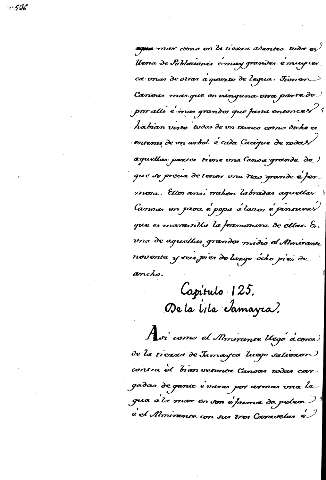 agua mar como en la tierra adentro todo es
llena de Poblaciones é muy grandes é muy cer
ca unas de otras á quarto de legua. Tienen
Canoas mas que en ninguna otra parte de
por alli é mas grandes que hasta entonces
habian visto todas de un tronco como dicho es
enteras de un arbol é cada Cacique de todas
aquellas partes tiene una Canoa grande de
que se precia de tener una Nao grande é fer
mosa. Ellos ansi trahen labradas aquellas
Canoas en proa é popa á lazos é pinturas
que es maravilla la fermosura de ellas. En
una de aquellas grandes midió el Almirante
noventa y seis pies de luengo ócho pies de
ancho.
Capítulo 125.
De la Isla Jamayca.
Asi como el Almirante llegó á cerca
de la tierra de Jamayca luego salieron
contra él bien setenta Canoas todas car
gadas de gente é varas por armas una le
gua á la mar en son é forma de pelear
é el Almirante con sus tres Caravelas é